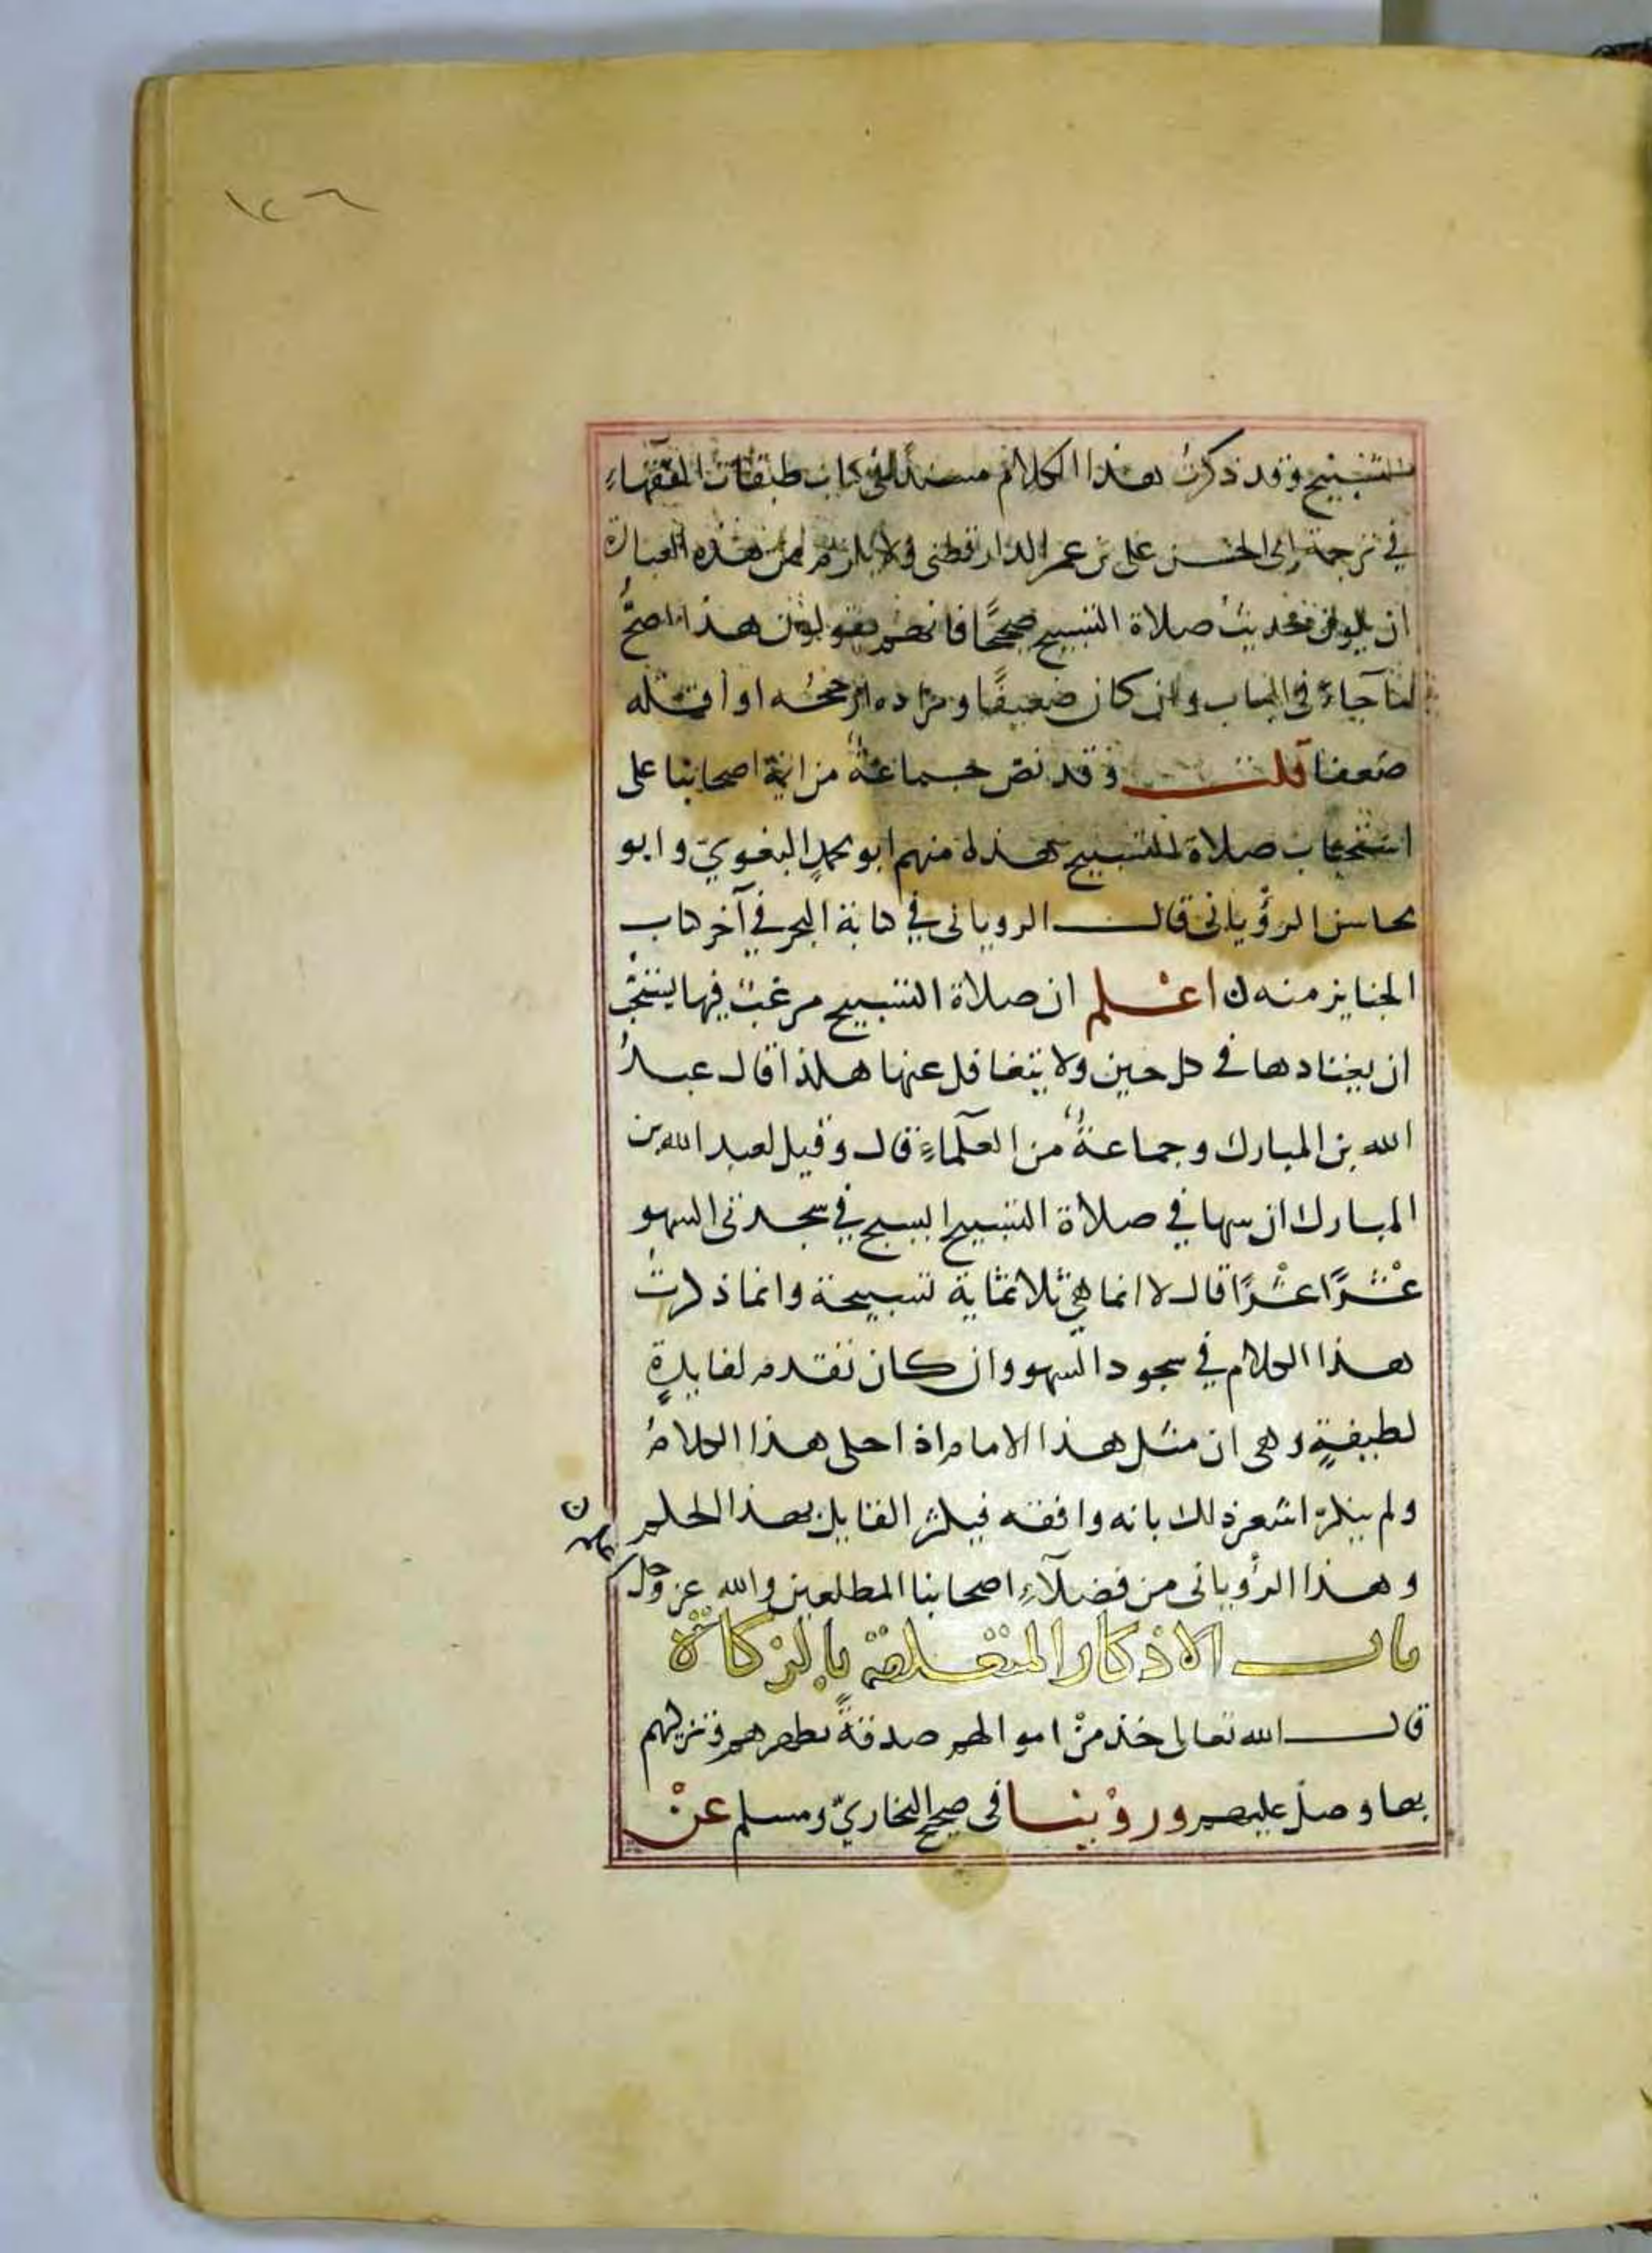 ١٢٦
التسبيح وقد ذكرت هذا الكلام مسندا في كتاب طبقات الفقهاء
في ترجمة ابى الحسن على بن عمر الدارقطنى ولا يلزم من هذه العبارة
ان يكون حديث صلاة التسبيح صحيحًا فانهم يقولون هذا اصحُّ
ما جاء في الباب وان كان ضعيفًا ومراده ارجحه او اقله
ضعفا قلت وقد نص جماعة من ائمة اصحابنا على
استحباب صلاة التسبيح هذه منهم ابو محمدٍ البغويّ وابو
محاسن الرؤيانى قال الرويانى في كتابة البحر في آخر كتاب
الجنايز منه اعْلم ان صلاة التسبيح مرغب فيها يستحب
ان يعتادها في كل حين ولا يتغافل عنها هكذا قال عبدُ
الله بن المبارك وجماعةٌ من العلماءِ قال وقيل لعبد الله بن
المبارك ان سها في صلاة التسبيح ايسبح في سجدتى السهو
عشْرًا عشْرًا قال لا انما هي ثلاثماية تسبيحة وانما ذكرتُ
هذا الكلام في سجود السهو وان كان تقدم لفايدةٍ
لطيفةٍ وهى ان مثل هذا الامام اذا حكى هذا الكلامُ
ولم ينكرْ اشعر ذلك بانه وافقه فيكثر القايل بهذا الحكم
وهذا الرؤيانى من فضلآءِ اصحابنا المطلعين والله عز وجل
باب الاذكار المتعلقة بالزكاة
قال الله تعالى خذ منْ اموالهم صدقةً تطهرهم وتزكيهم
بها وصلّ عليهم وروْينا فى صحيح البخاريّ ومسلم عنْ